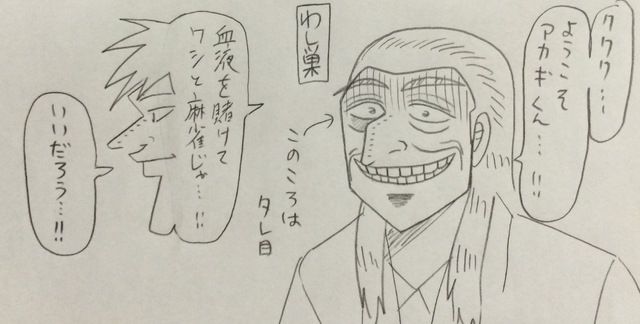 ククク…
ようこそ
アカギくん…!!
わし巣
このころは
タレ目
血液を賭けて
ワシと麻雀じゃ…!!
いいだろう…!!